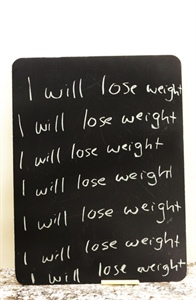 I will lose weight
I will lose weight
I will lose weight
I will lose weight
I will lose weight
I will lose weight
I will lose weight